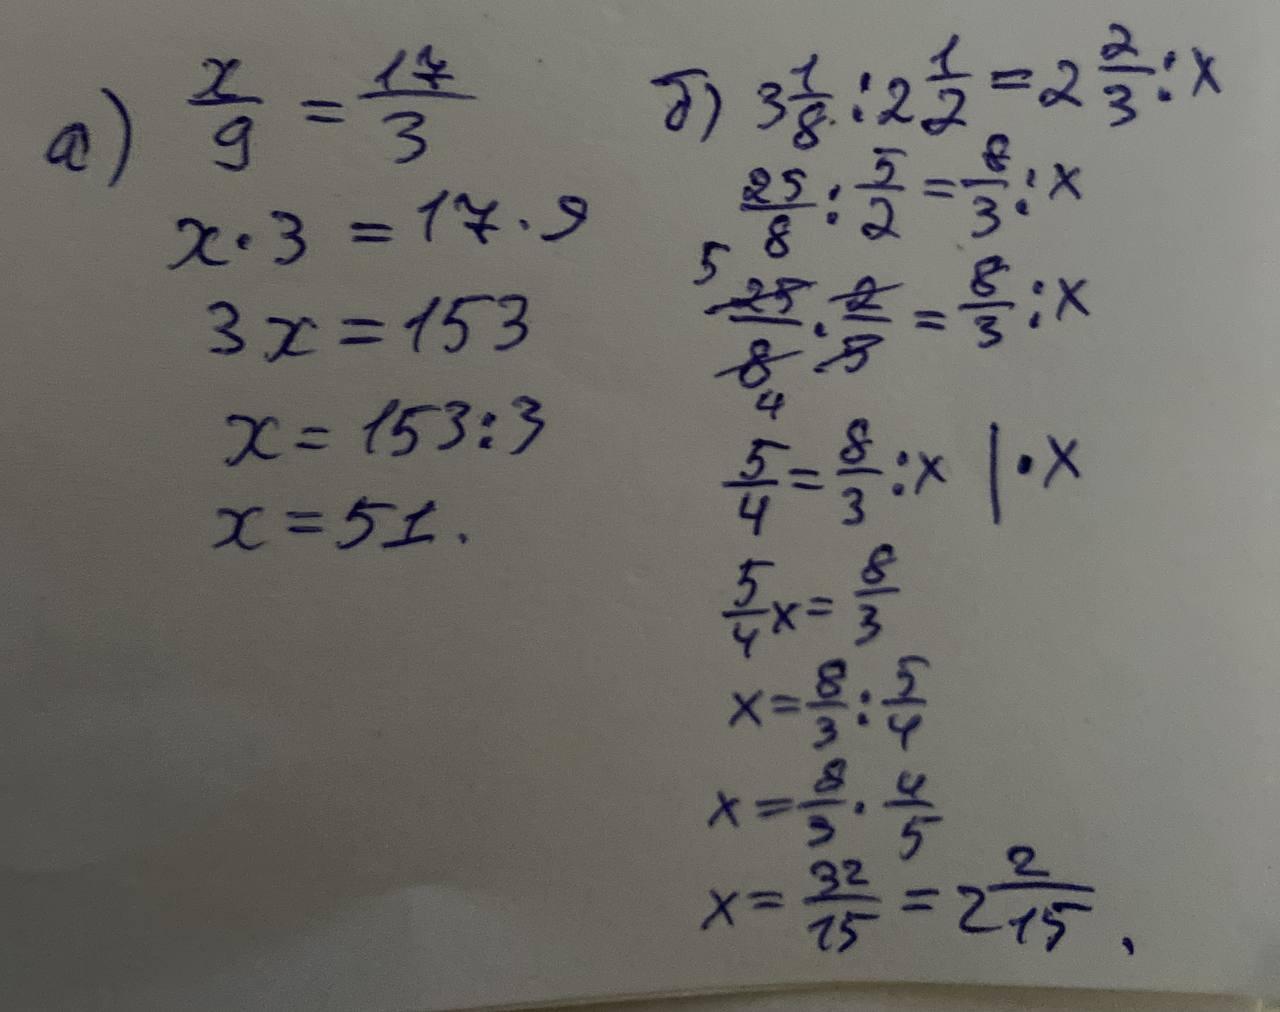 а) x/9 = 17/3
x·3 = 17·9
3x = 153
x = 153:3
x = 51.
б) 3 1/8 : 2 1/2 = 2 2/3 : x
25/8 : 5/2 = 8/3 : x
5 25/8 · 2/5 = 8/3 : x
4
5/4 = 8/3 : x | · x
5/4 x = 8/3
x = 8/3 : 5/4
x = 8/3 · 4/5
x = 32/15 = 2 2/15,